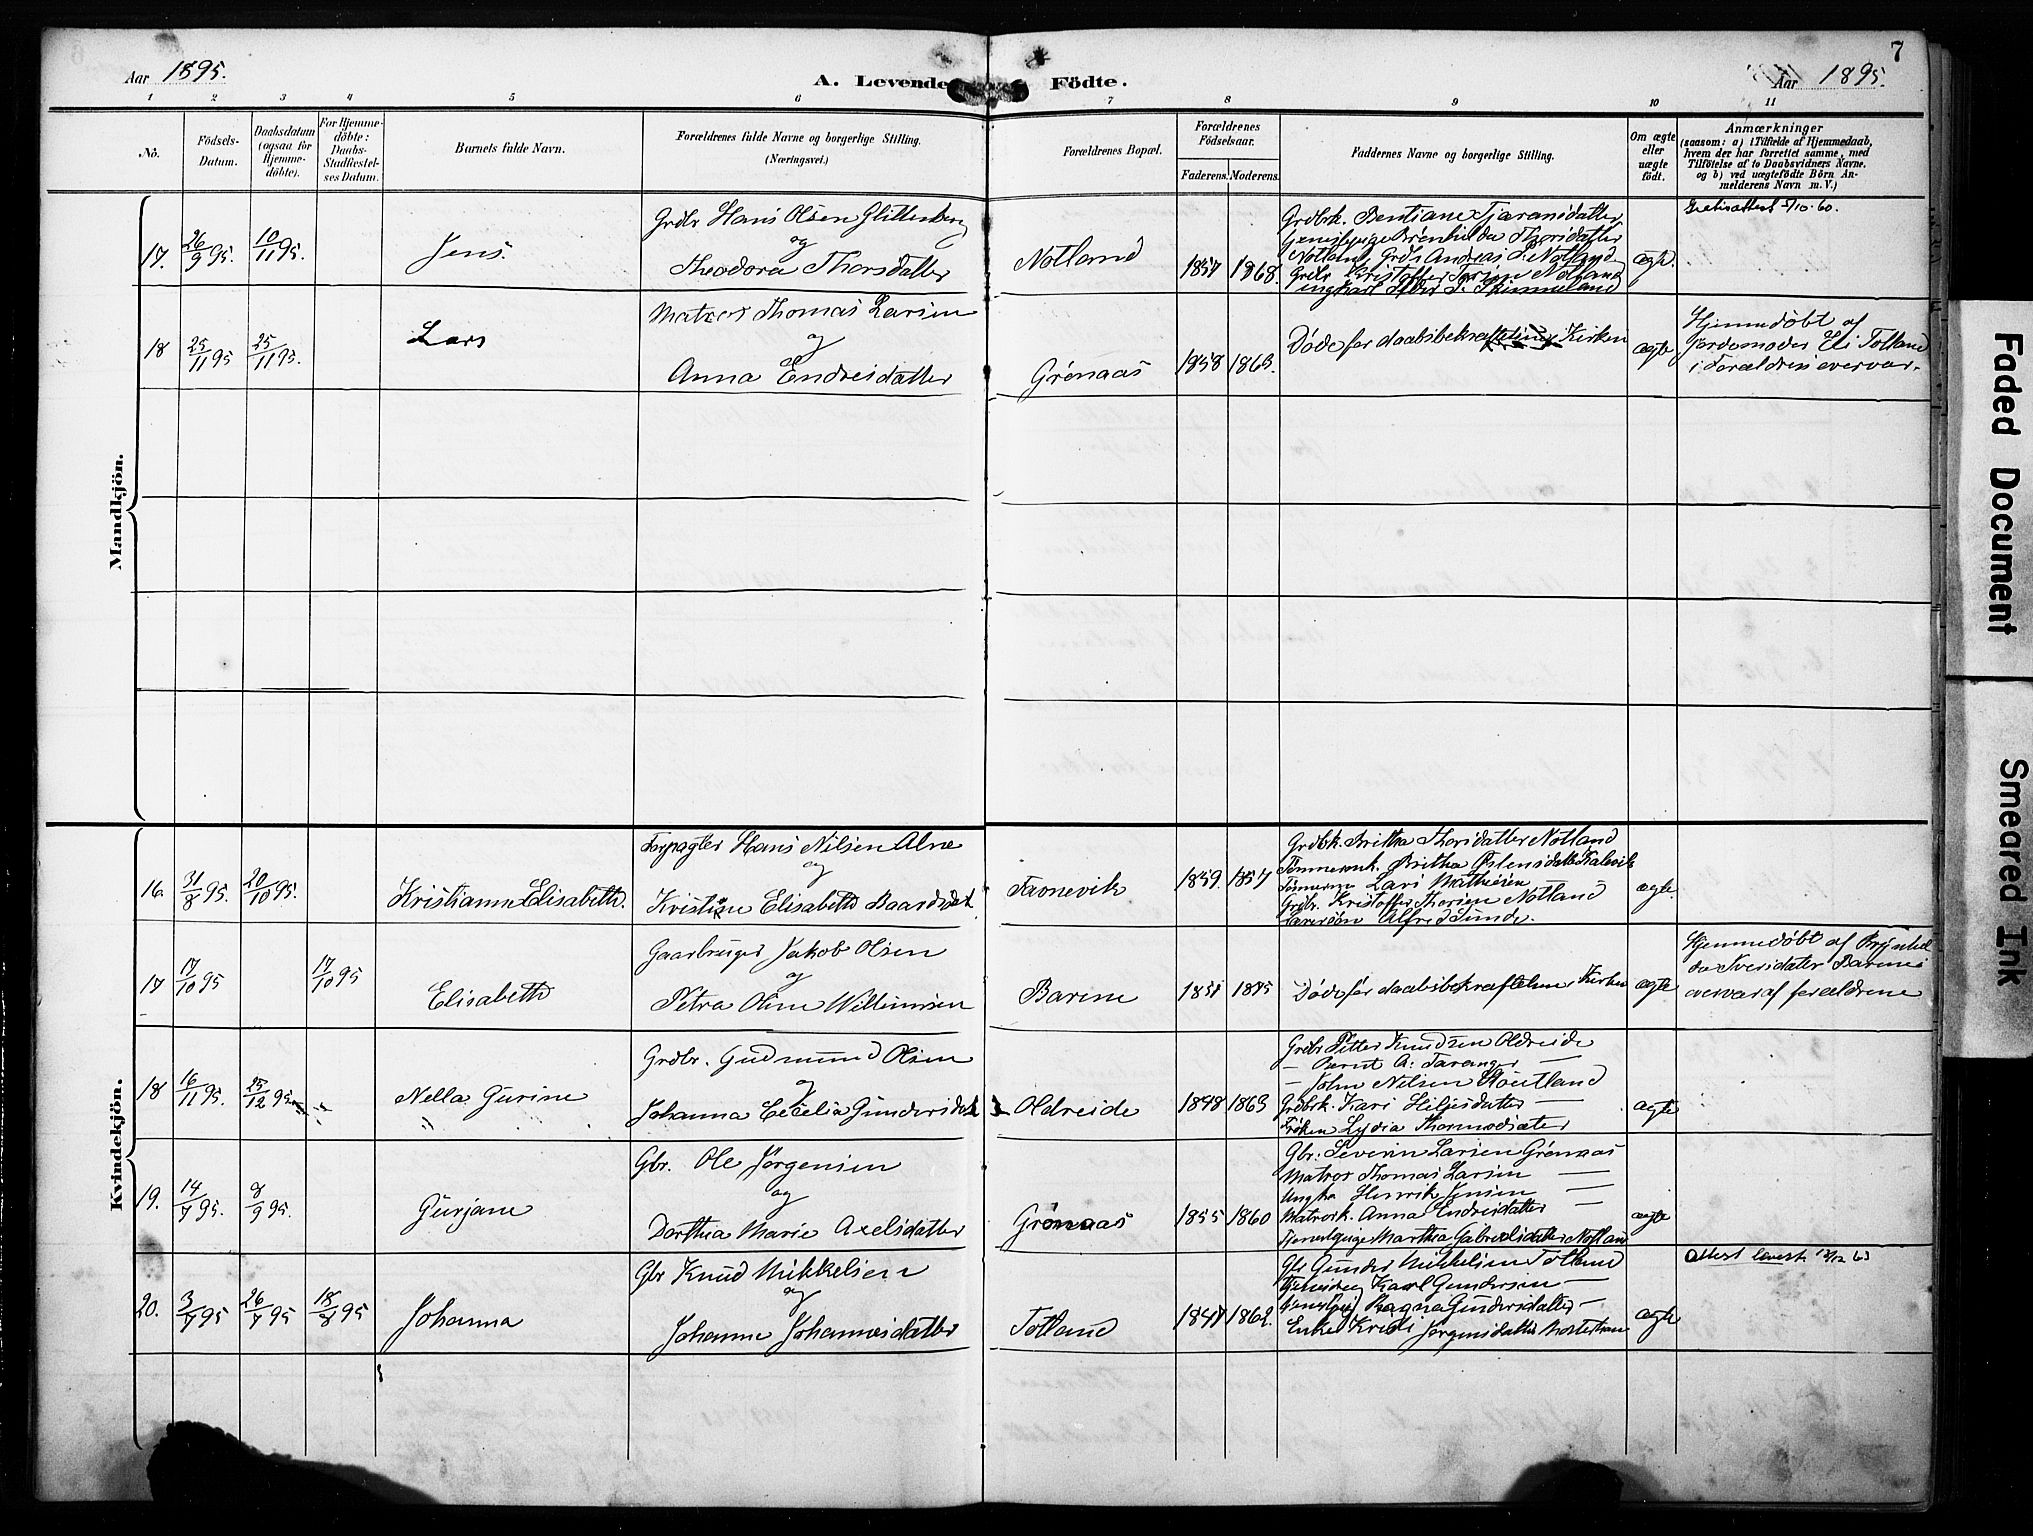 Aar 1895.
A. Levende Födte.
7
Aar 1895.
1 2 3 4 5 6 7 8 9 10 11
No.
Födsels-Datum.
Daabsdatum (ogsaa for Hjemmedöbte).
For Hjemmedöbte: Daabs-Stadfæstelses Datum.
Barnets fulde Navn.
Forældrenes fulde Navne og borgerlige Stilling.
(Næringsvei.)
Forældrenes Bopæl.
Forældrenes Födselsaar.
Faderens. Moderens.
Faddernes Navne og borgerlige Stilling.
Om ægte eller uægte födt.
Anmærkninger
(saasom: a) i Tilfælde af Hjemmedaab, hvem der har forrettet samme, med Tilföielse af to Daabsvidners Navne. og b) ved uægtefödte Börn Anmelderens Navn m. V.)
Mandkjön.
17. 26/9 95. 10/11 95. Jens.
Grdbr Hans Olsen Glittenberg
og
Theodora Thorsdatter
Notland 1857 1868.
Grdbrk. Bentiane Tjaransdatter
Notland, Grdb Andreas P. Notland
Grdbr Kristoffer Torsen Notland
ægte.
18 25/11 95 25/11 95. Lars
Matros Thomas Larsen
og
Anna Endresdatter
Grönaas 1858 1863.
Døde før daabsbekræftelsen i Kirken
ægte
Hjemmedøbt af
Jordemoder Eli Totland
Kvindekjön.
16. 31/8 95. 20/10 95. Kristianne Elisabeth.
Forpagter Hans Nilsen Alne
og
Kristine Elisabeth Baardsdat
Tavnevik 1859. 1857
Grdbrk. Britha Thorsdatter Notland
Lars Mathiesen
Grdbr. Kristoffer Thorsen Notland
ægte.
17 17/10 95 17/10 95 Elisabeth
Gaarbruger Jakob Olsen
og
Petra Oline Willumsen
Barene
Døde før daabsbekræftelsen i Kirken
ægte
Hjemmedøbt af
overvar af forældrene
18 16/11 95. 25/12 95 Nella Gurine
Grdbr. Gudmund Olsen
og
Johanna Cecelia Gundersdat
Oldreide 1848 1863
Grdbr Petter Knudsen Oldreide
— Bernt A: Taranger —
— John Nilsen
Grdbrk. Kari Hiljesdatter —
Frøken Lydia Thormodsæter
ægte
19. 14/7 95. 8/9 95. Gurjane
Gbr. Ole Jørgensen
og
Dorthea Marie Axelsdatter
Grønaas 1855 1860
Gbr. Severin Larsen Grønaas
Matros Thomas Larsen —
Ungka Henrik Jensen —
Matrosk. Anna Endresdatter —
Martha Gabrielsdatter Notland
ægte
20. 3/7 95 26/7 95 18/8 95 Johanna
Gbr Knud Mikkelsen
og
Johanne Johannesdatter
Totland 1862.
Gbr Gunder Mikkelsen Totland
Karl Gundersen —
Ragna Gundersdatter —
Enke
ægte
Attest
Faded Document
Smeared Ink